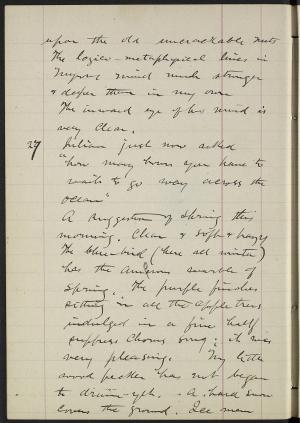 upon the old uncrackable nuts
The logico-metaphysical lines in
mind much stronger
& deeper than in my own
The inward eye of his mind is
very clear.
27 Julian just now asked
"how many hours you have to
wait to go way across the
ocean"
A suggestion of spring this
morning. Clear & soft & hazy
The blue-bird (here all winter)
has the amorous warble of
spring. The purple finches
sitting in all the apple trees
indulged in a fine half
suppress chorus song; it was
very pleasing. My little
wood pecker has not began
to drum yet. - A hard snow
covers the ground. Ice men